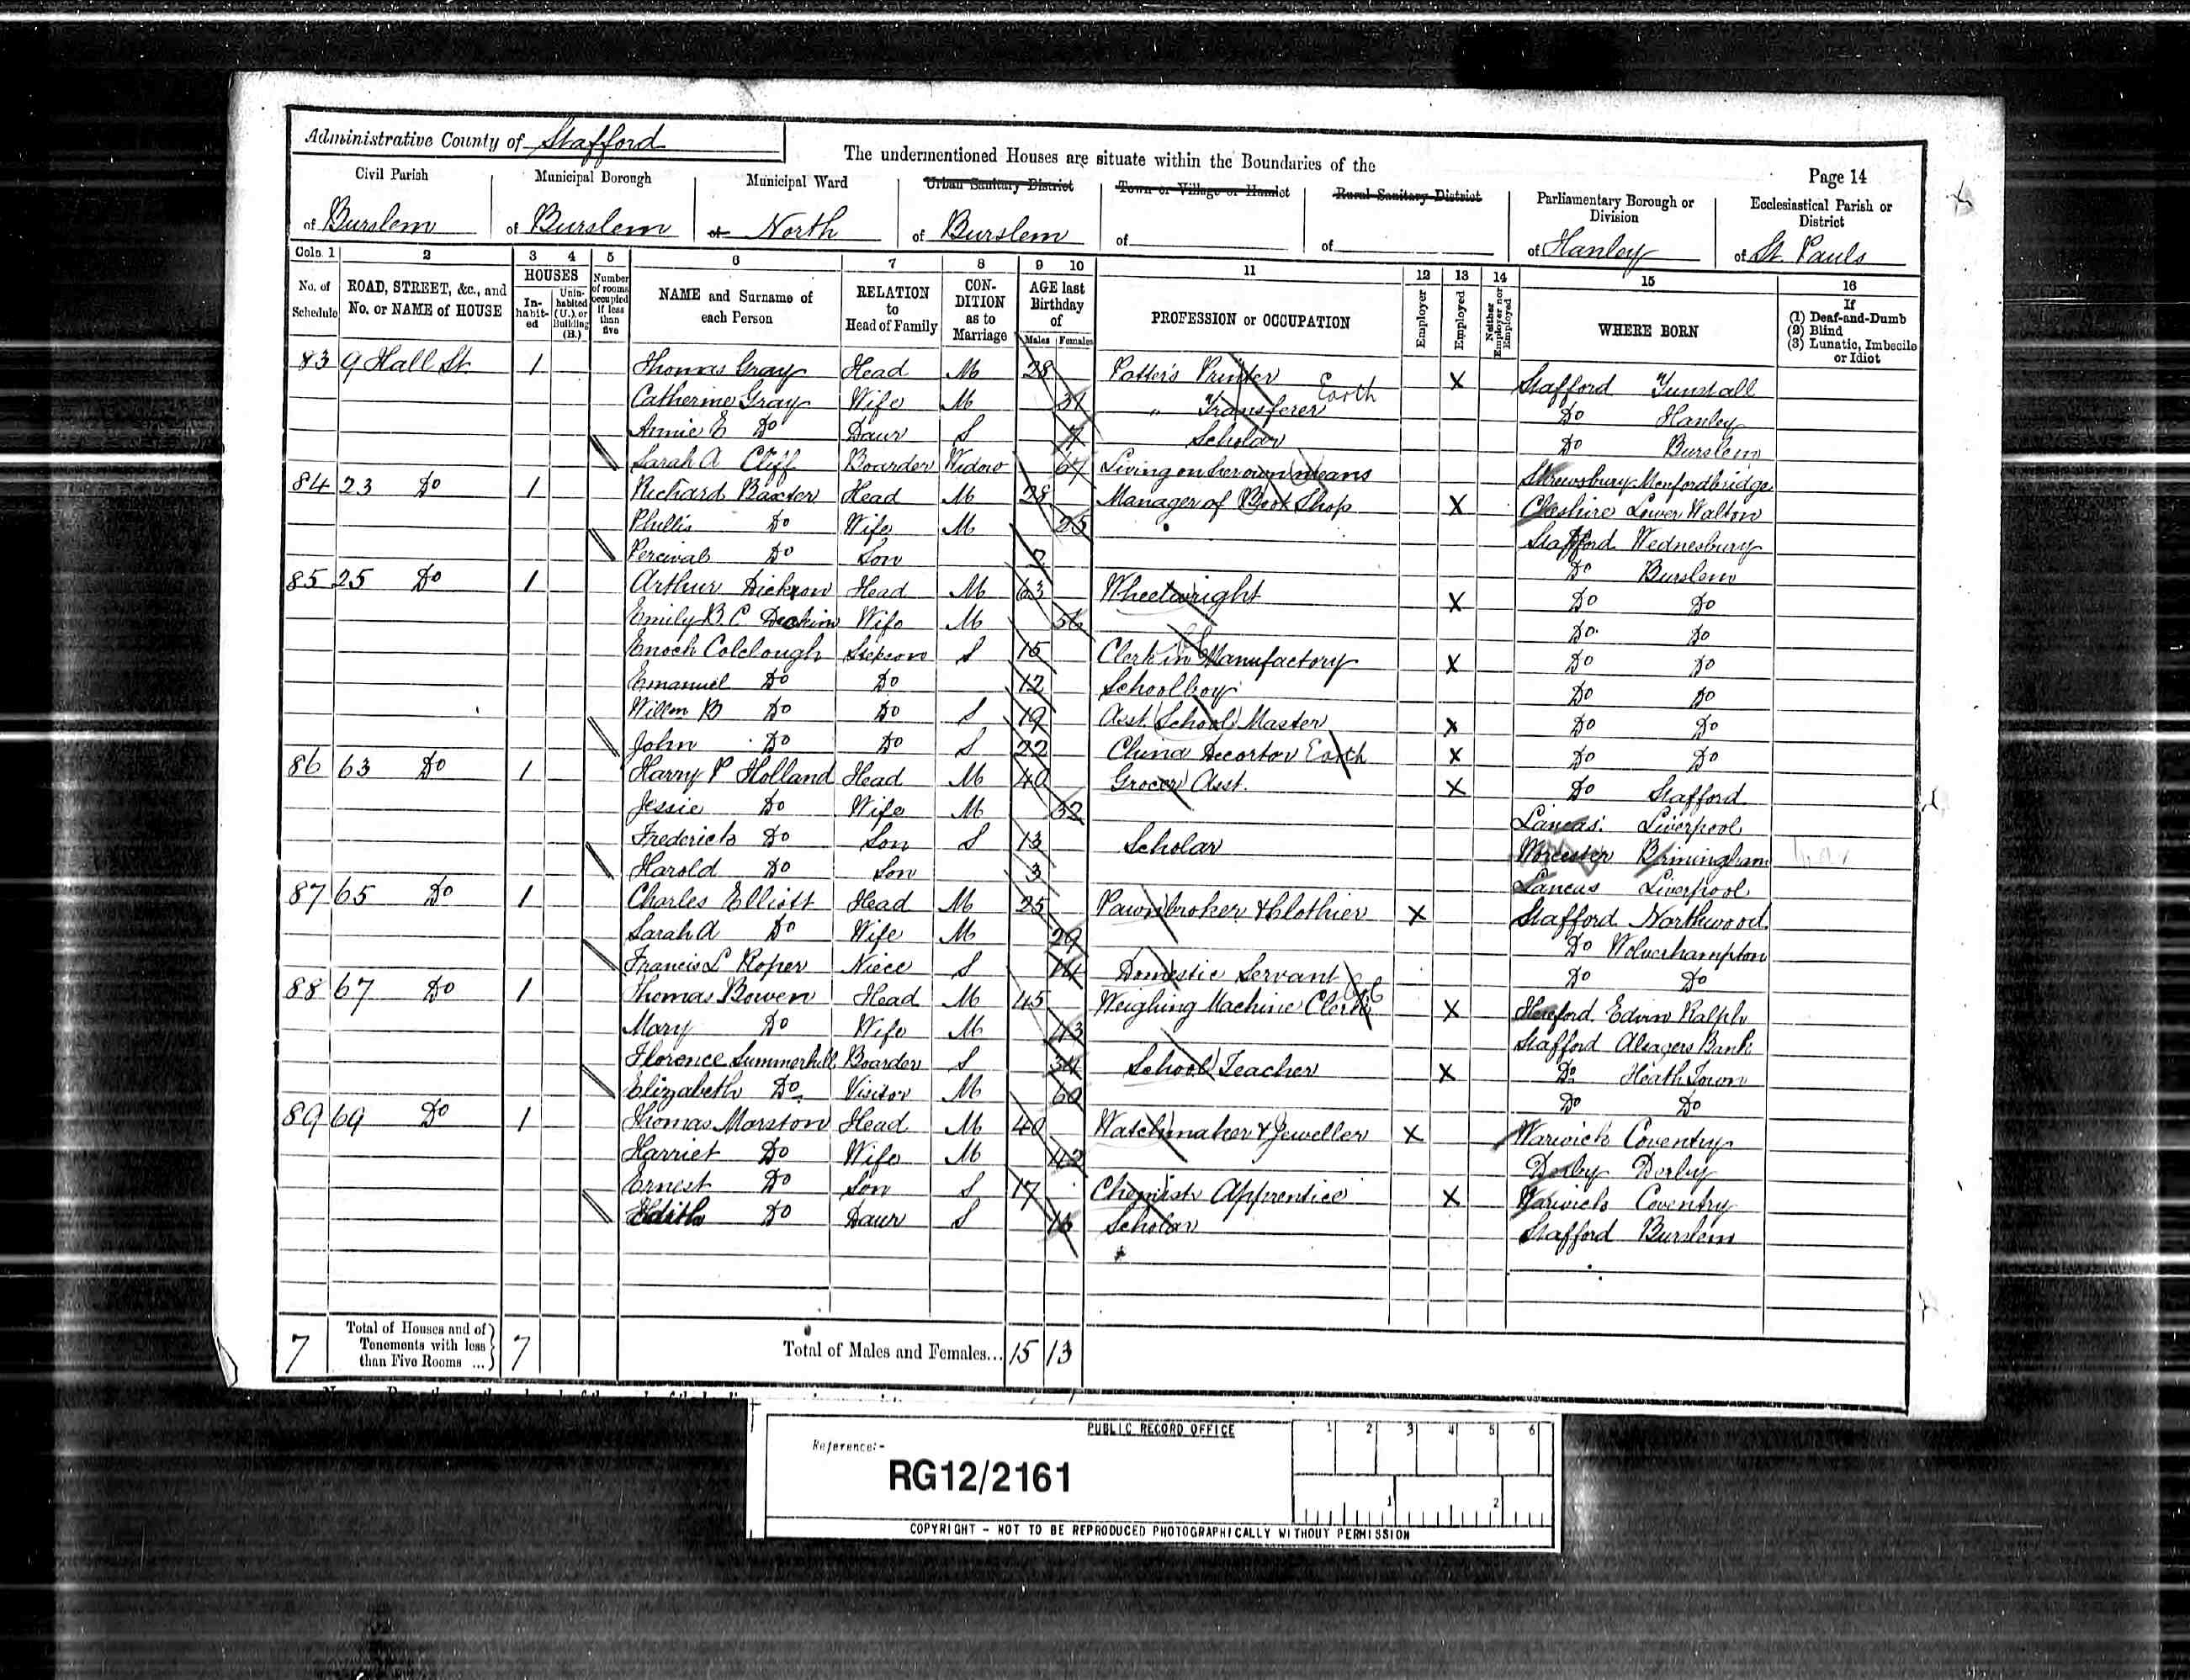 Administrative County of Stafford
The undermentioned Houses are situate within the Boundaries of the
Page 14
Civil Parish Municipal Borough Municipal Ward Urban Sanitary District Town or Village or Hamlet Rural Sanitary District Parliamentary Borough or Division Ecclesiastical Parish or District
of Burslem of Burslem of North of Burslem of of of Hanley of St. Pauls
Cols. 1 2 3 4 5 6 7 8 9 10 11 12 13 14 15 16
No. of Schedule ROAD, STREET, &c., and No. or NAME of HOUSE HOUSES In-habit-ed Unin-habited (U.), or Building (B.) Number of rooms occupied if less than five NAME and Surname of each Person RELATION to Head of Family CON-DITION as to Marriage AGE last Birthday of Males Females PROFESSION or OCCUPATION Employer Employed Neither Employer nor Employed WHERE BORN If (1) Deaf-and-Dumb (2) Blind (3) Lunatic, Imbecile or Idiot
83 9 Hall St. 1 Thomas Gray Head M 28 Potter's Printer X Stafford Tunstall
Catherine Gray Wife M 31 " Transferer Earth Do Hanley
Annie E Do Daur S 7 Scholar Do Burslem
Sarah A Cliff Boarder Widow 67 Living on her own means Shrewsbury
84 23 Do 1 Richard Baxter Head M 28 Manager of Boot Shop X Cheshire Lower Walton
Phillis Do Wife M 25 Stafford Wednesbury
Percival Do Son 2 Do Burslem
85 25 Do 1 Arthur Head M 63 Wheelwright X Do Do
Emily B. C Wife M 56 Do Do
Enoch Colclough Stepson S 15 Clerk in Manufactory X Do Do
Emanuel Do Do 12 Schoolboy Do Do
Willm B Do Do S 19 Asst School Master X Do Do
John Do Do S 22 China Decortor Earth X Do Do
86 63 Do 1 Harry P Holland Head M 40 Grocer Asst. X Do Stafford
Jessie Do Wife M 32 Lancas. Liverpool
Frederick Do Son S 13 Scholar Worcester Birmingham
Harold Do Son 3 Lancas Liverpool
87 65 Do 1 Charles Elliott Head M 25 Pawnbroker & Clothier X Stafford Northwood
Sarah A Do Wife M 29 Do Wolverhampton
Francis L Roper Niece S 14 Domestic Servant Do Do
88 67 Do 1 Thomas Bowen Head M 45 Weighing Machine Clerk X Hereford Edvin Ralph
Mary Do Wife M 43 Stafford Alsagers Bank
Florence Summerhill Boarder S 34 School Teacher X Do Heath Town
Elizabeth Do. Visitor M 60 Do Do
89 69 Do 1 Thomas Marston Head M 40 Watchmaker & Jeweller X Warwick Coventry
Harriet Do Wife M 42 Derby Derby
Ernest Do Son S 17 Chemists Apprentice X Warwick Coventry
Edith Do Daur S 15 Scholar Stafford Burslem
7 Total of Houses and of Tenements with less than Five Rooms ... 7 Total of Males and Females... 15 13
PUBLIC RECORD OFFICE
Reference:-
RG12/2161
1 2 3 4 5 6
1 2
COPYRIGHT - NOT TO BE REPRODUCED PHOTOGRAPHICALLY WITHOUT PERMISSION